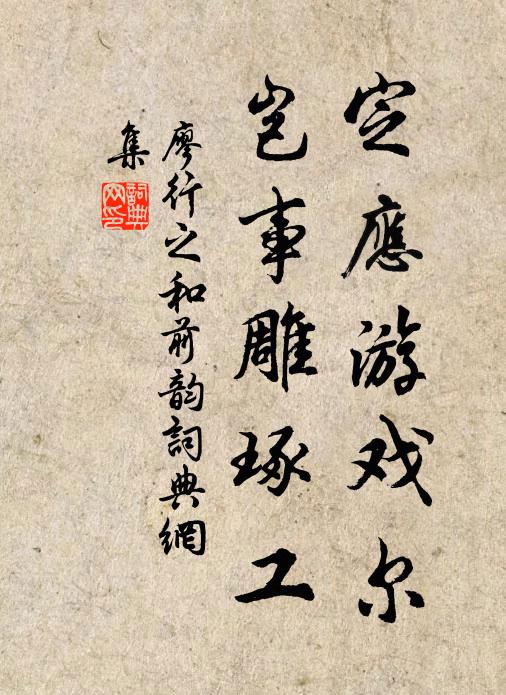 定應游戏尔
岂事雕琢工
廖行之和前韵詞典網
集
詞典網印